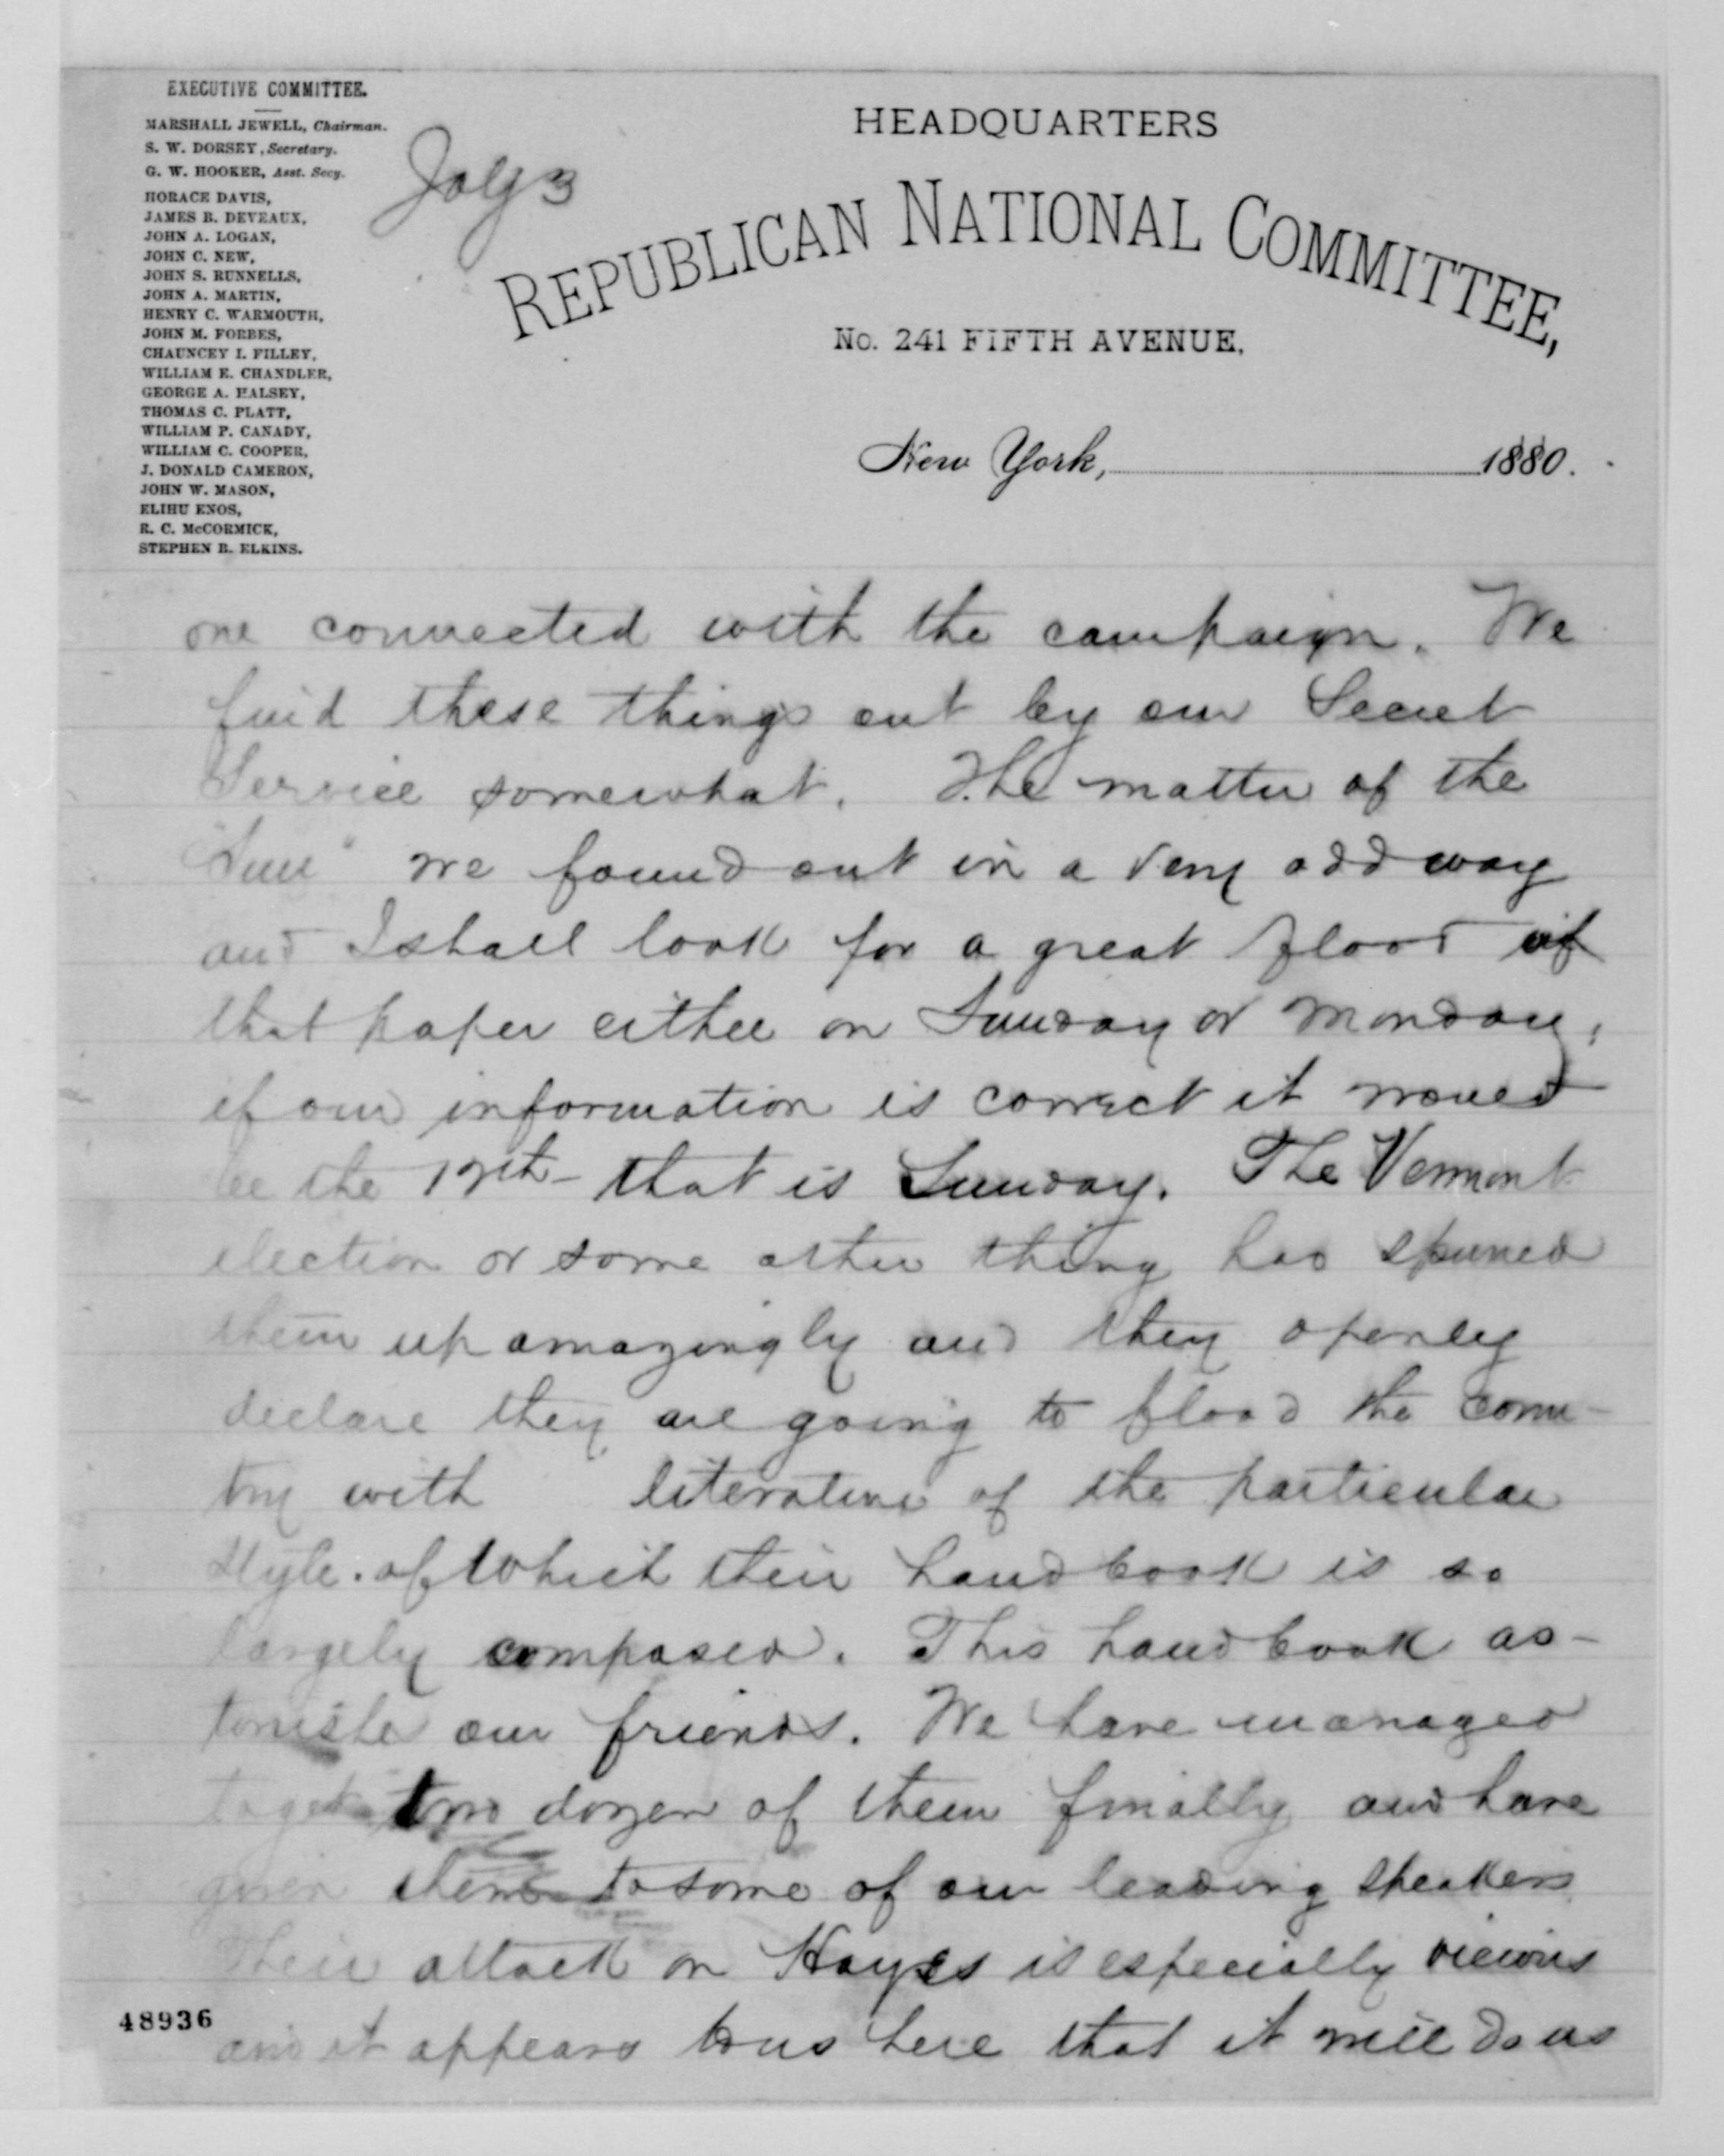 EXECUTIVE COMMITTEE.
MARSHALL JEWELL, Chairman.
S. W. DORSEY, Secretary.
G. W. HOOKER, Asst. Secy.
HORACE DAVIS,
JAMES B. DEVEAUX,
JOHN A. LOGAN,
JOHN C. NEW,
JOHN S. RUNNELLS,
JOHN A. MARTIN,
HENRY C. WARMOUTH,
JOHN M. FORBES,
CHAUNCEY I. FILLEY,
WILLIAM E. CHANDLER,
GEORGE A. HALSEY,
THOMAS C. PLATT,
WILLIAM P. CANADY,
WILLIAM C. COOPER,
J. DONALD CAMERON,
JOHN W. MASON,
ELIHU ENOS,
R. C. McCORMICK,
STEPHEN B. ELKINS.
3
HEADQUARTERS
REPUBLICAN NATIONAL COMMITTEE,
No. 241 FIFTH AVENUE,
New York, 1880.
one connected with the campaign. We
find these things out by our Secret
Service somewhat. The matter of the
"Sun" we found out in a very odd way
and I shall look for a great flood of
that paper either on Sunday or Monday,
if our information is correct it would
be the 12th - that is Sunday. The Vermont
election or some other thing has spurred
them up amazingly and they openly
declare they are going to flood the coun-
try with literature of the particular
style of which their handbook is so
largely composed. This handbook as-
tonishes our friends. We have managed
to get two dozen of them finally and have
given them to some of our leading speakers
Their attack on Hayes is especially vicious
and it appears to us here that it will do us
48936